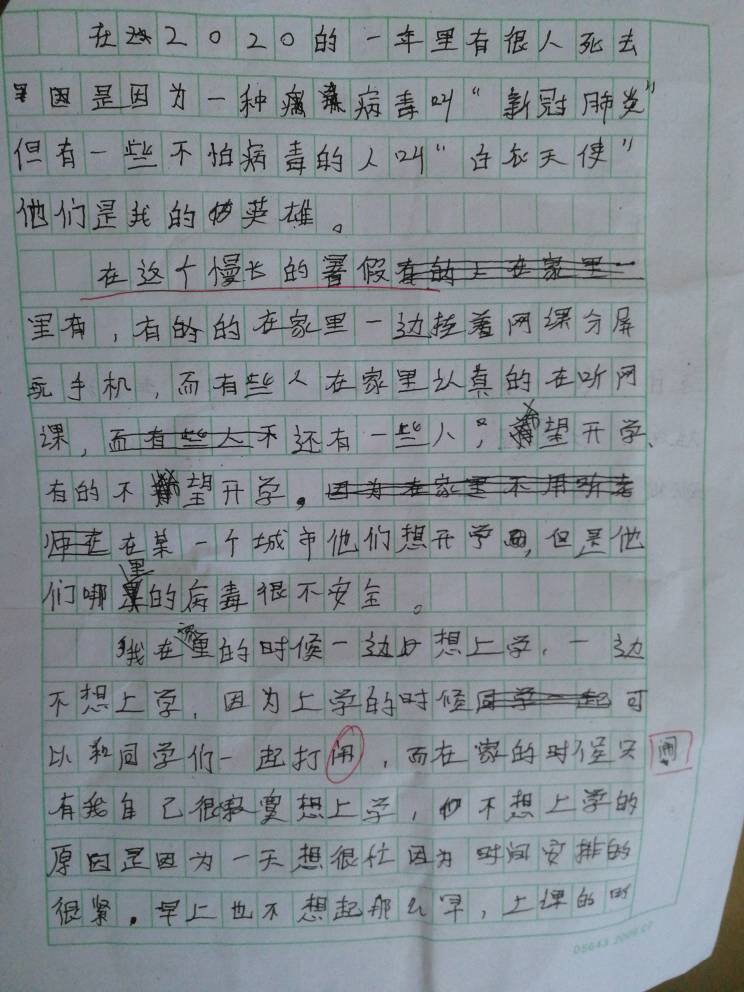 在2020的一年里有很人死去
因是因为一种痛病毒叫“新冠肺炎”
但有一些不怕病毒的人叫“白衣天使”
他们是我的英雄。
在这个慢长的暑假
里有，有的的在家里一边挂着网课分屏
玩手机，而有些人在家里认真的在听网
课，还有一些人，希望开学、
有的不希望开学。
在某一个城市他们想开学，但是他
们哪里的病毒很不安全。
我在家里的时候一边想上学，一边
不想上学，因为上学的时候可
以和同学们一起打闹，而在家的时候只 闹
有我自己很寂寞想上学，也不想上学的
原因是因为一天想很忙因为时间安排的
很紧。早上也不想起那么早，上课的时
05643 2009.07